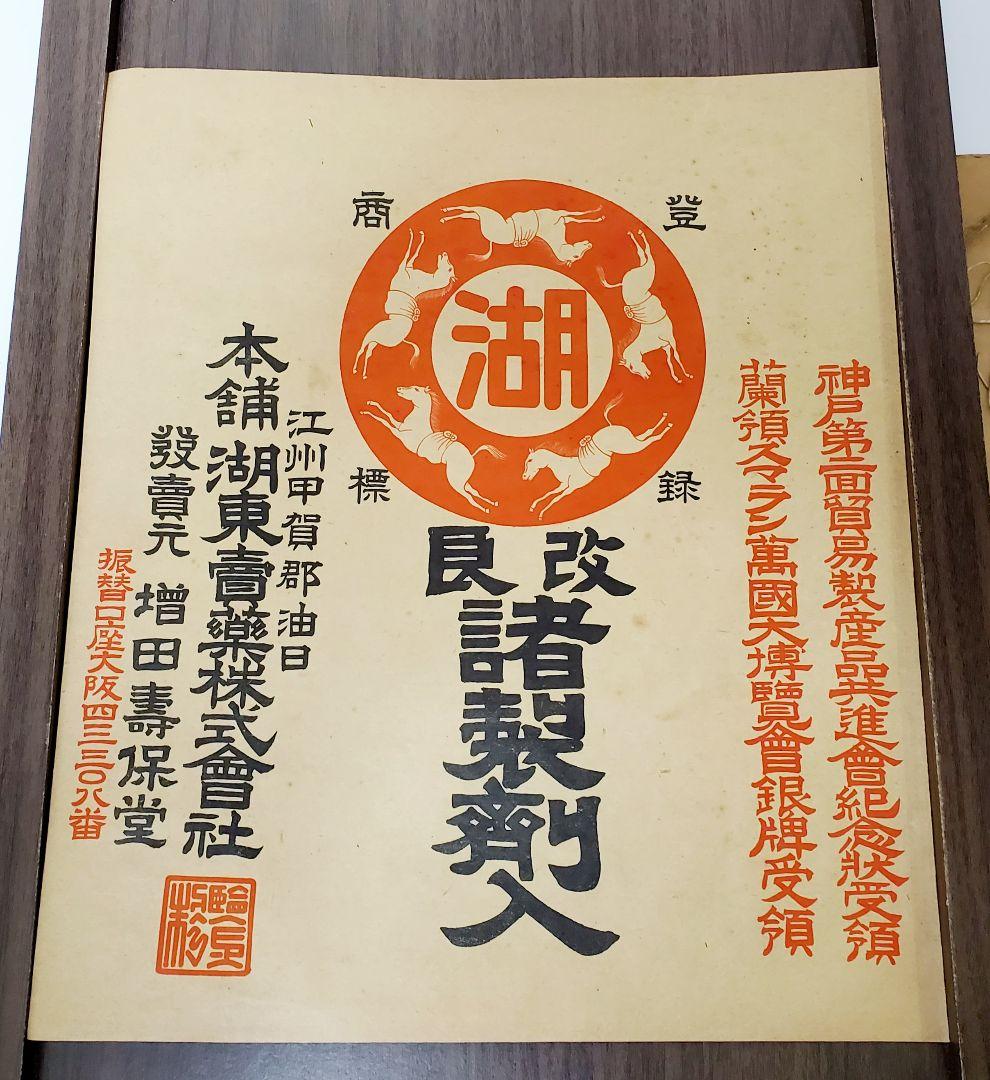 神戸第二回貿易製産品共進會紀念狀受領
蘭領スマラン萬國大博覽會銀牌受領
登録商標
湖
改良
諸製劑入
江州甲賀郡油日
本舖湖東賣藥株式會社
發賣元 增田壽保堂
振替口座大阪四三三〇八番